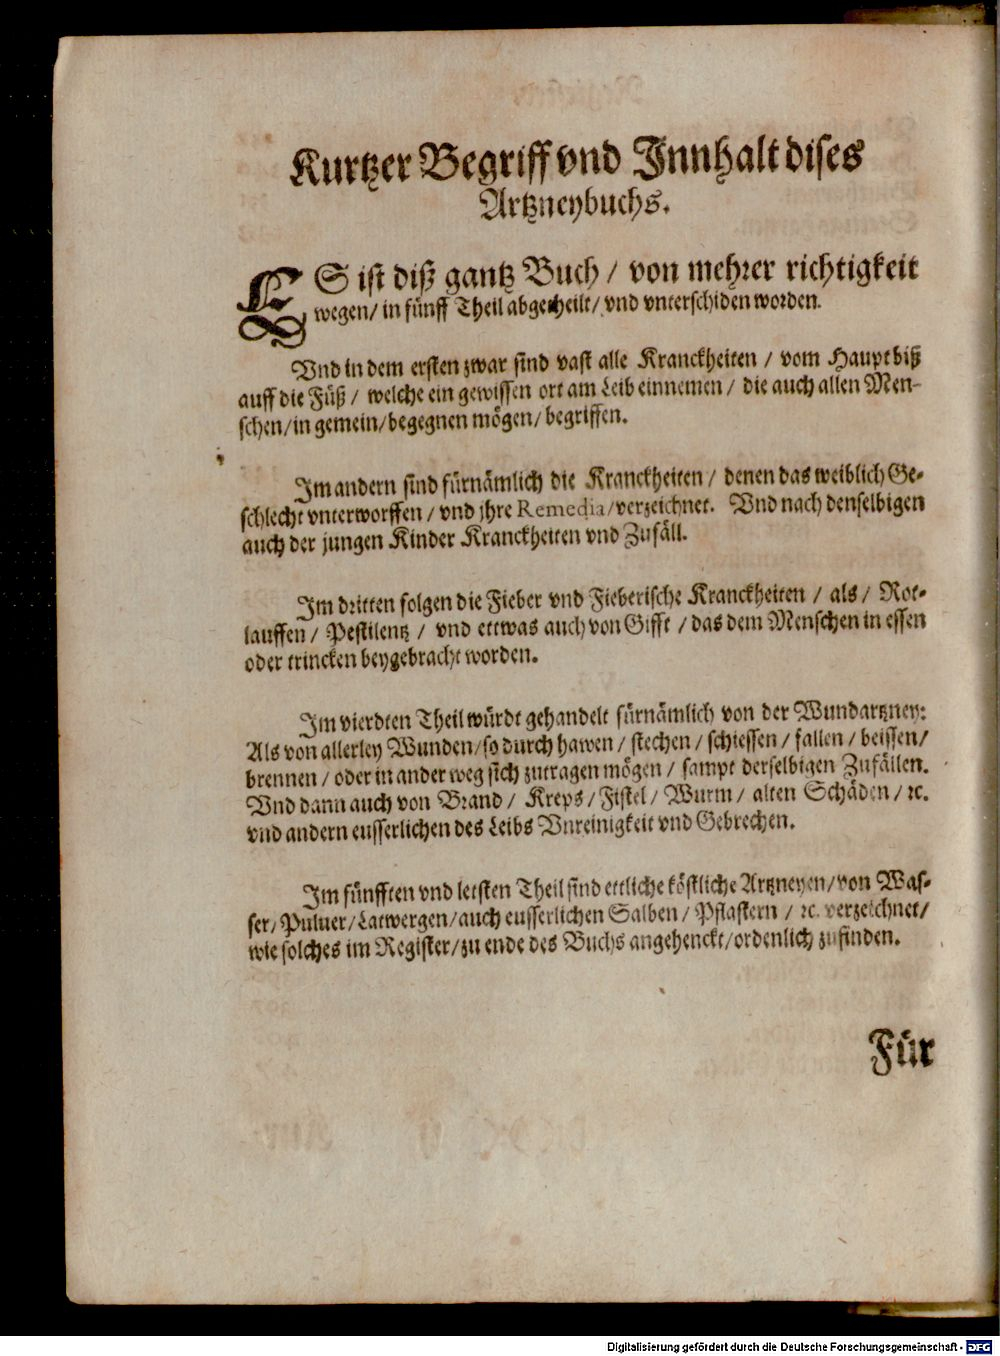 Kurtzer Begriff vnd Innhalt dises
Artzneybuchs.
ES ist diß gantz Buch / von mehrer richtigkeit
wegen / in fünff Theil abgetheilt / vnd vnterschiden worden.
Vnd in dem ersten zwar sind vast alle Kranckheiten / vom Haupt biß
auff die Füß / welche ein gewissen ort am Leib einnemen / die auch allen Men-
schen / in gemein / begegnen mögen / begriffen.
Im andern sind fürnämlich die Kranckheiten / denen das weiblich Ge-
schlecht vnterworffen / vnd ihre Remedia / verzeichnet. Vnd nach denselbigen
auch der jungen Kinder Kranckheiten vnd Zufäll.
Im dritten folgen die Fieber vnd Fieberische Kranckheiten / als / Rot-
lauffen / Pestilentz / vnd ettwas auch von Gifft / das dem Menschen in essen
oder trincken beygebracht worden.
Im vierdten Theil würdt gehandelt fürnämlich von der Wundartzney:
Als von allerley Wunden / so durch hawen / stechen / schiessen / fallen / beissen /
brennen / oder in ander weg sich zutragen mögen / sampt derselbigen Zufällen.
Vnd dann auch von Brand / Kreps / Fistel / Wurm / alten Schäden / ꝛc.
vnd andern eusserlichen des Leibs Vnreinigkeit vnd Gebrechen.
Im fünfften vnd letsten Theil sind ettliche köstliche Artzneyen / von Was-
ser / Puluer / Latwergen / auch eusserlichen Salben / Pflastern / ꝛc. verzeichnet /
wie solches im Register / zu ende des Buchs angehenckt / ordenlich zufinden.
Für
Digitalisierung gefördert durch die Deutsche Forschungsgemeinschaft - DFG